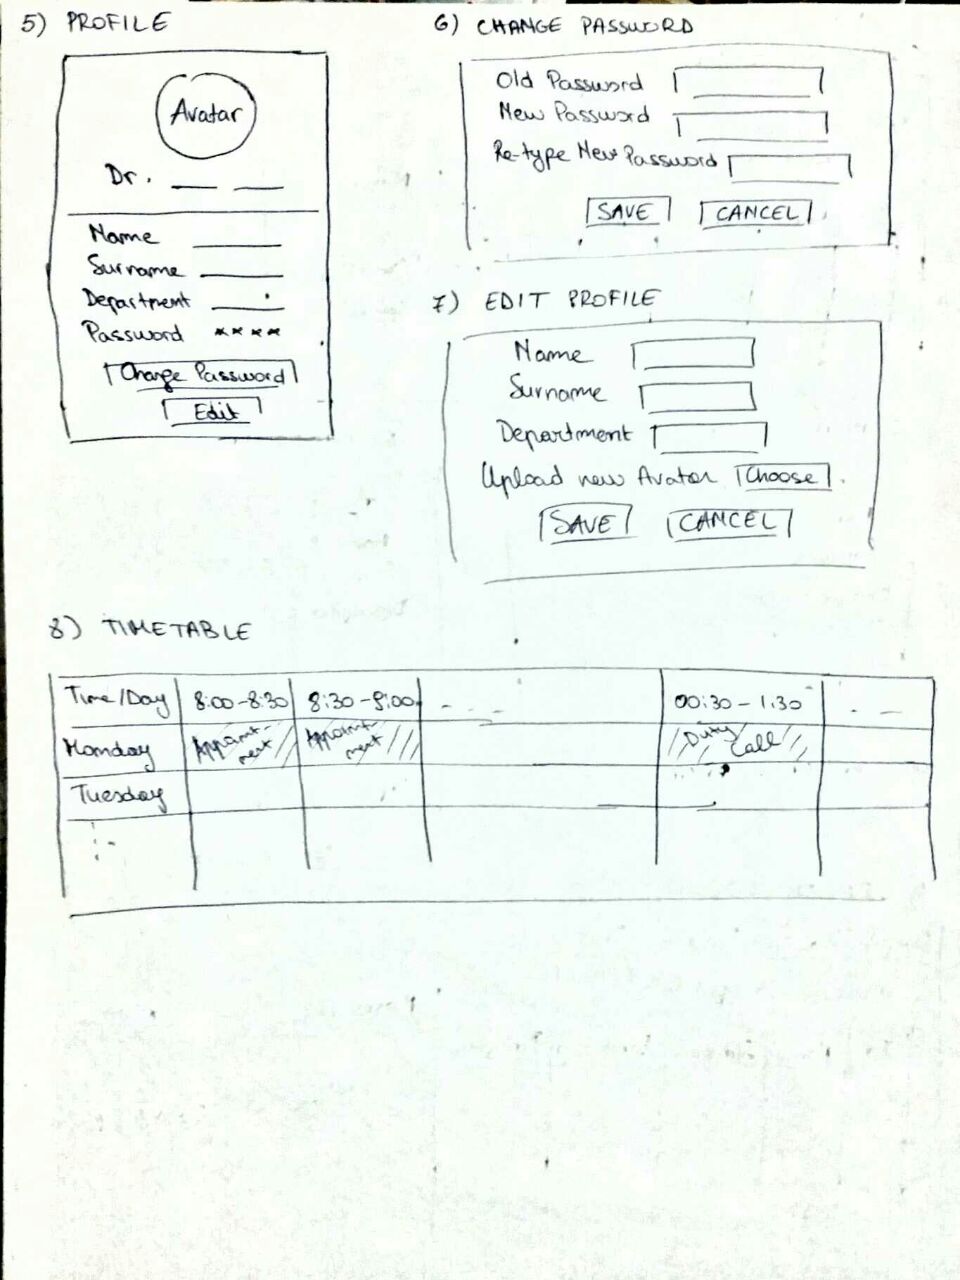 5) PROFILE
Avatar
Dr. __ __
Name ____
Surname ____
Department ____
Password ****
Change Password
Edit
6) CHANGE PASSWORD
Old Password
New Password
Re-type New Password
SAVE CANCEL
7) EDIT PROFILE
Name
Surname
Department
Upload new Avatar Choose
SAVE CANCEL
8) TIMETABLE
Time/Day 8:00-8:30 8:30-9:00 - - - 00:30-1:30 - -
Monday Appoint-ment Appoint-ment Duty Call
Tuesday